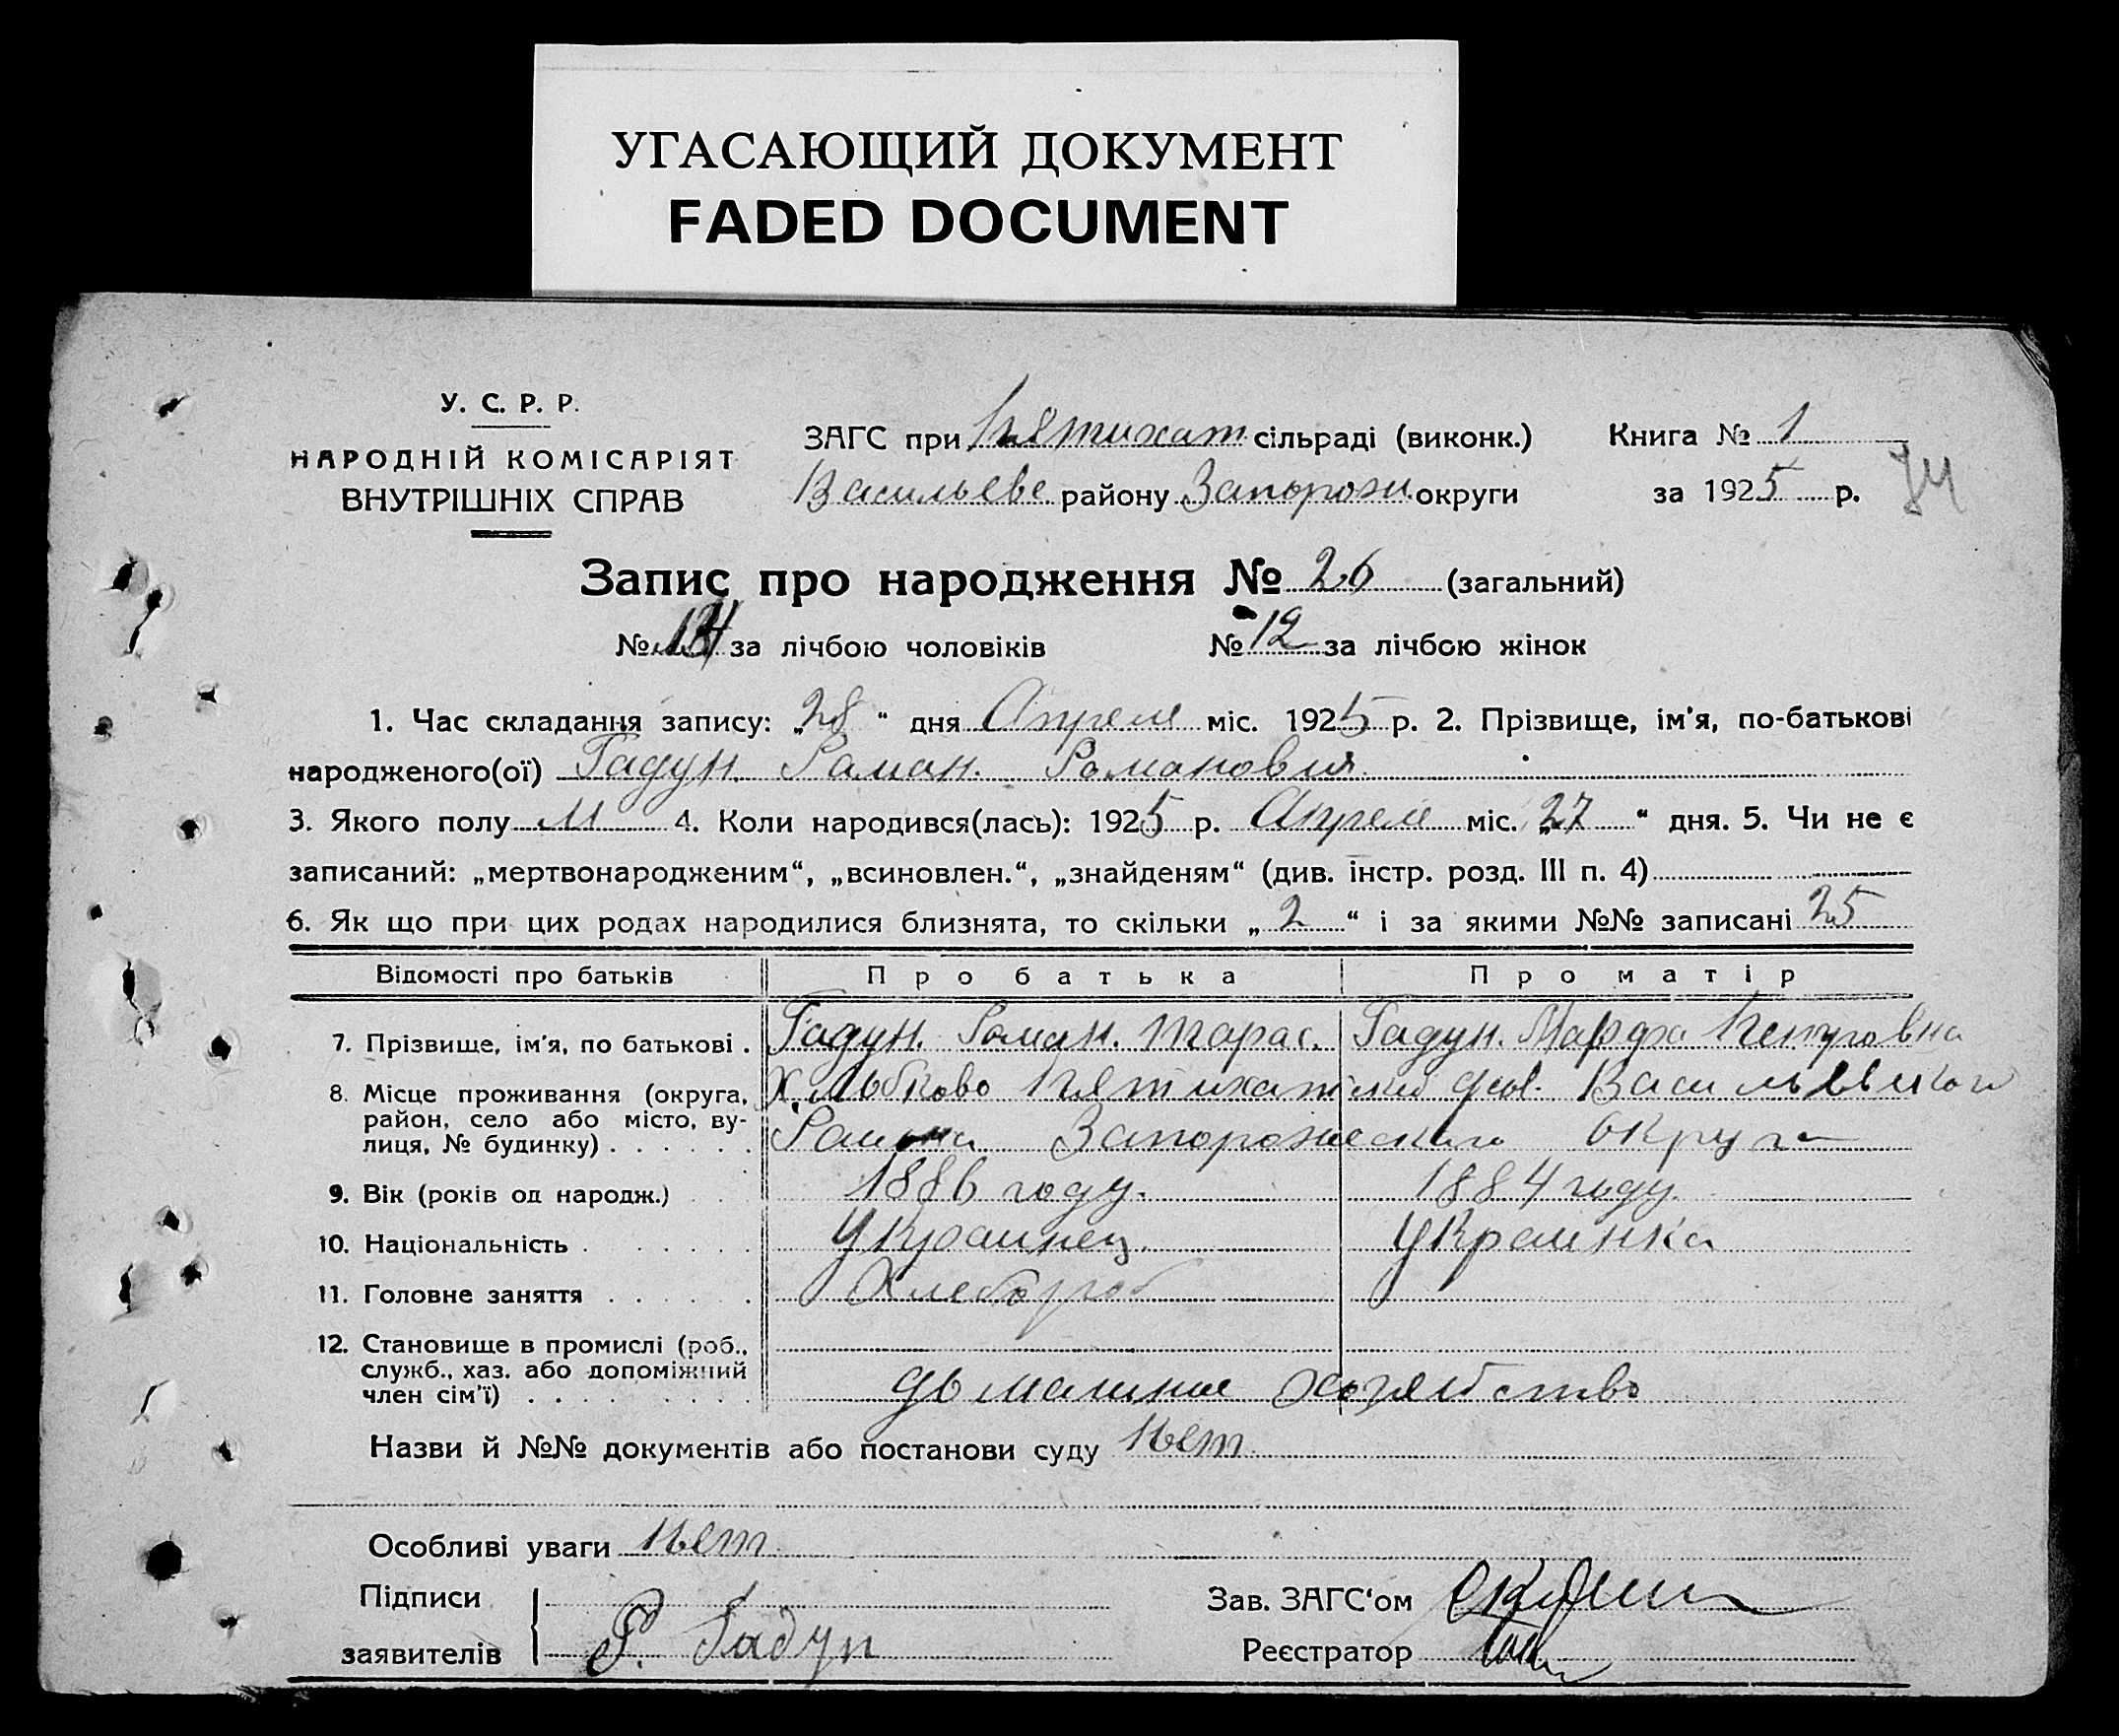 УГАСАЮЩИЙ ДОКУМЕНТ
FADED DOCUMENT
У. С. Р. Р.
НАРОДНІЙ КОМІСАРІЯТ
ВНУТРІШНІХ СПРАВ
ЗАГС при Пятихат сільраді (виконк.)
Васильеве району Запорожи округи
Книга № 1
за 1925 р.
74
Запис про народження № 26 (загальний)
№ 14 за лічбою чоловіків № 12 за лічбою жінок
1. Час складання запису: „28“ дня Апреля міс. 1925 р. 2. Прізвище, ім'я, по-батькові
народженого(ої) Гадун. Роман. Романовия
3. Якого полу М 4. Коли народився(лась): 1925 р. Апреля міс. „27“ дня. 5. Чи не є
записаний: „мертвонародженим“, „всиновлен.“, „знайденям“ (див. інстр. розд. III п. 4)
6. Як що при цих родах народилися близнята, то скільки „2“ і за якими №№ записані 25
Відомості про батьків Про батька Про матір
7. Прізвище, ім'я, по батькові . Гадун. Роман. Тарас. Гадун. Марфа Петровна
8. Місце проживання (округа, район, село або місто, вулиця, № будинку) Х. Пятихатский Васильевского
Района Запорожского округа
9. Вік (років од народж.) 1886 году. 1884 году.
10. Національність Украинец. Украинка
11. Головне заняття Хлебороб
12. Становище в промислі (роб., служб., хаз. або допоміжний член сім'ї) домашнее хозяйство
Назви й №№ документів або постанови суду Нет
Особливі уваги Нет
Підписи
заявителів Р. Гадун
Зав. ЗАГС'ом
Реєстратор